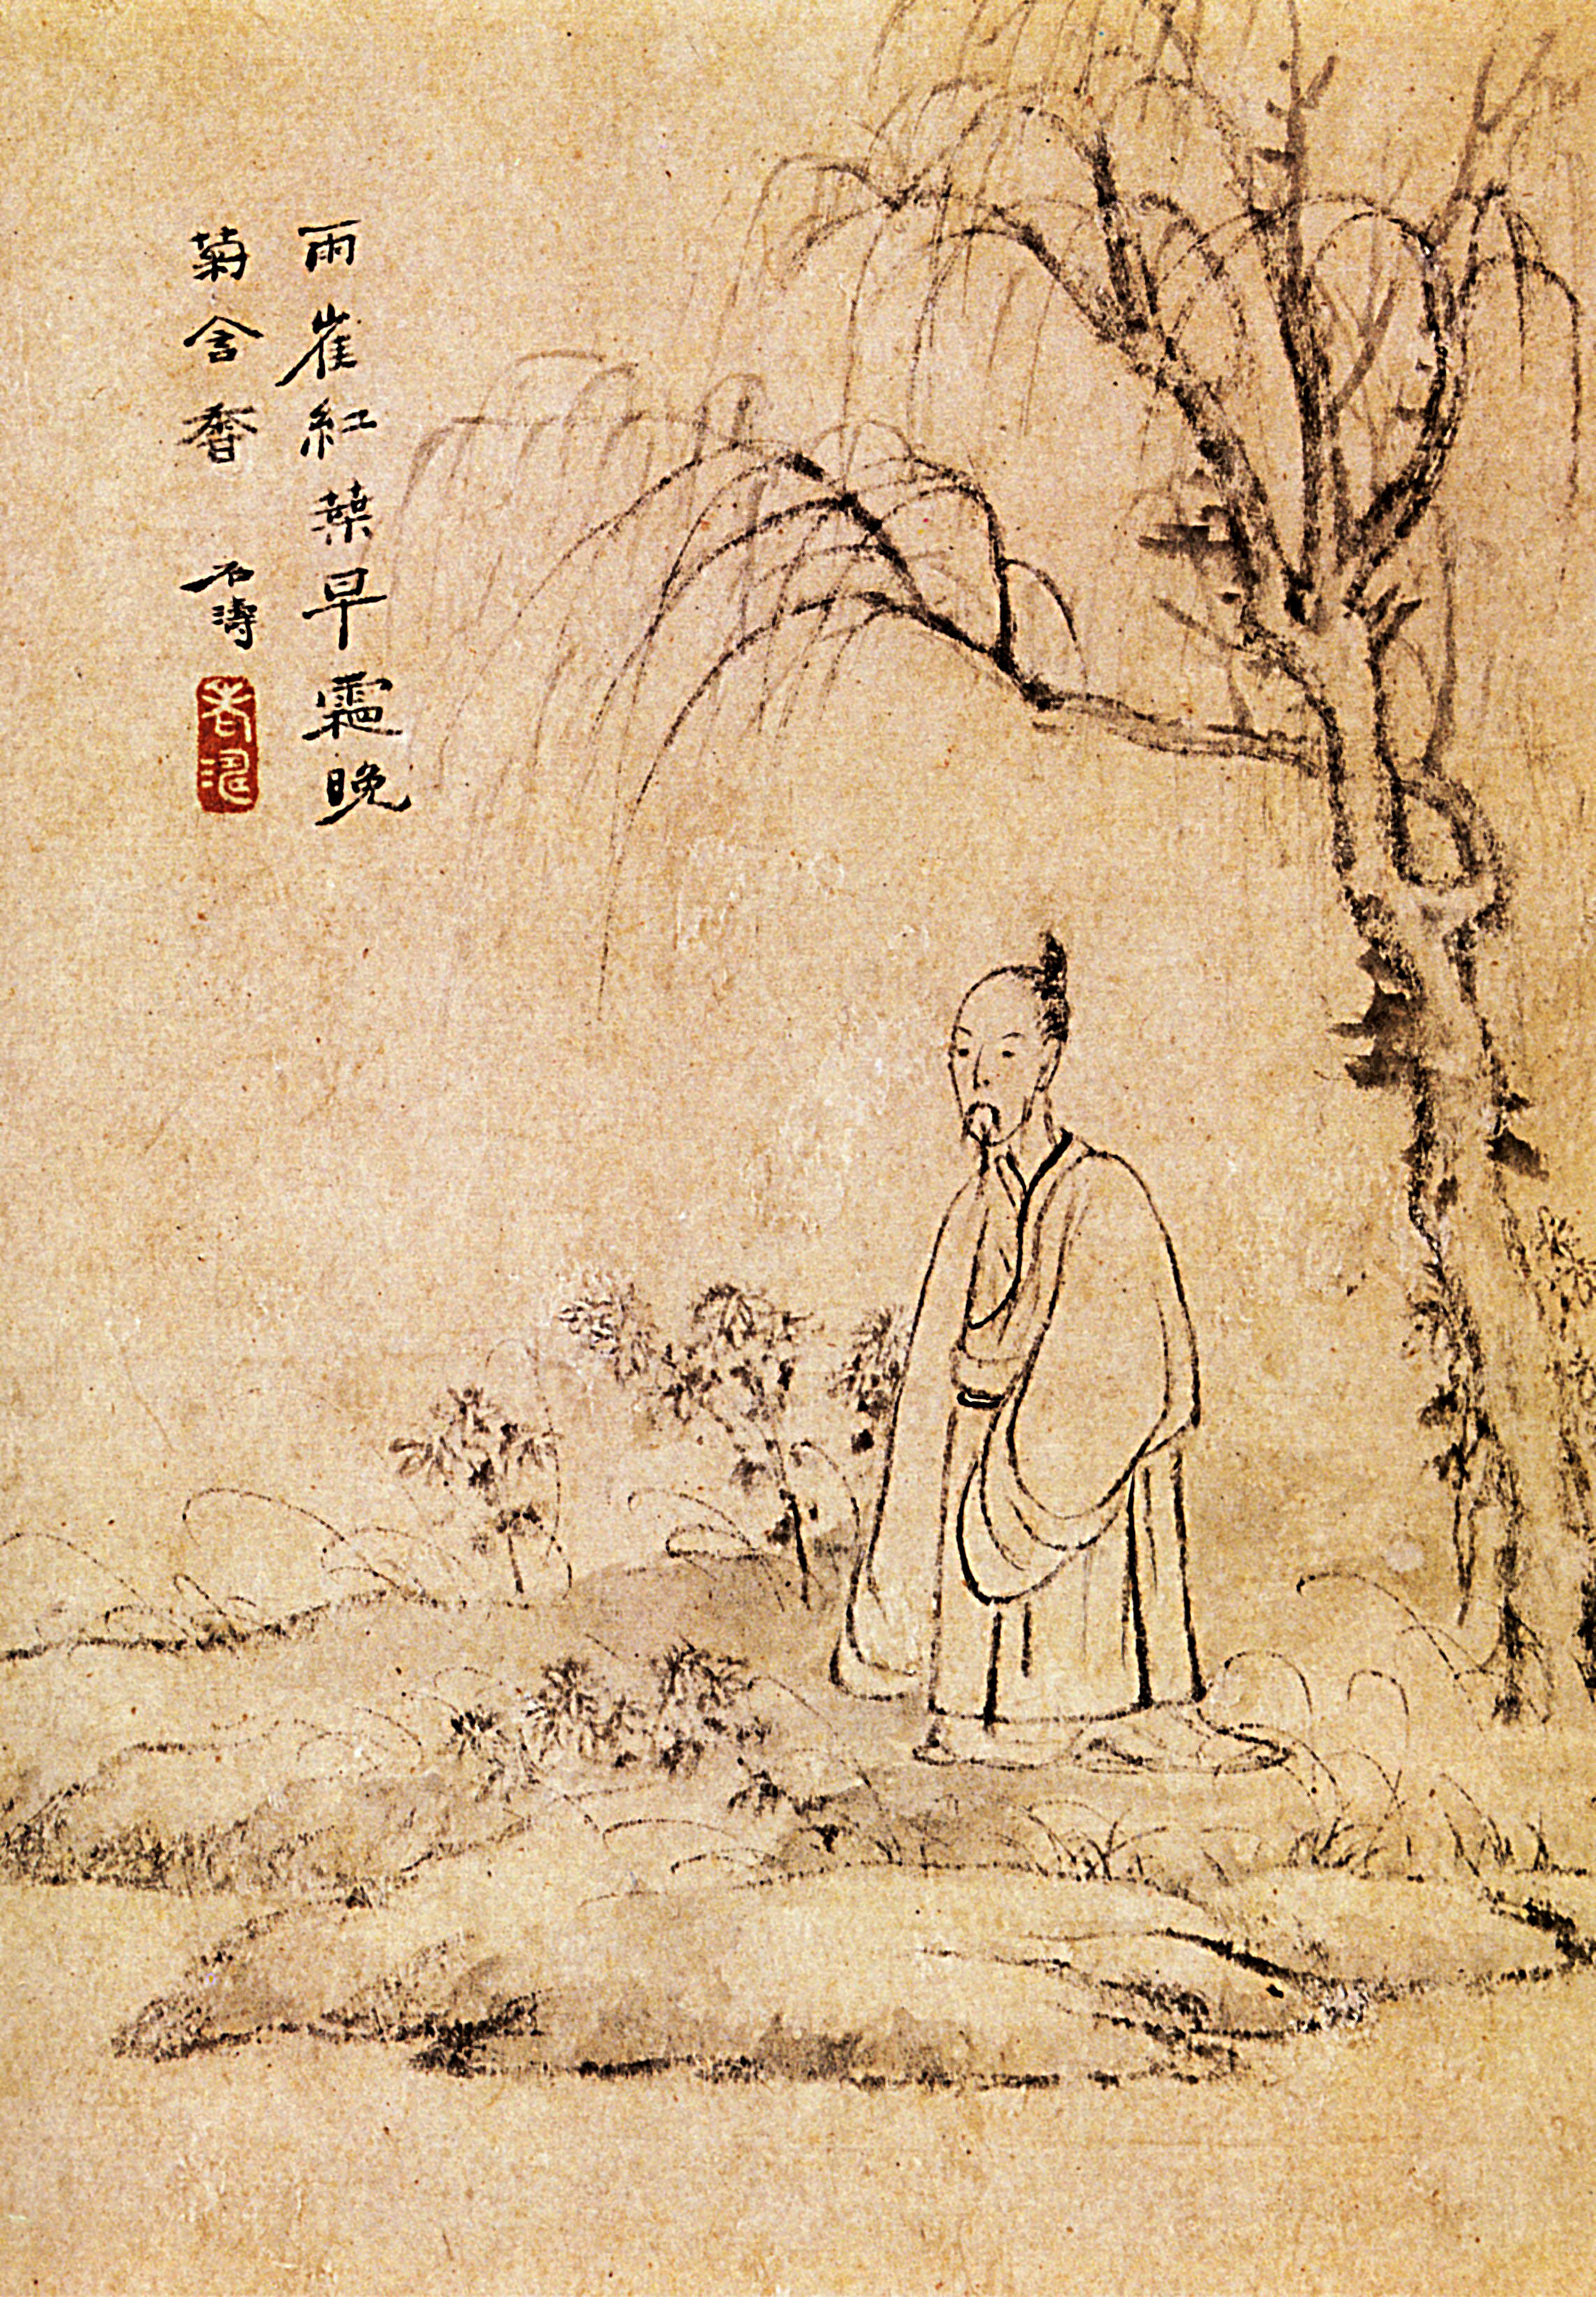 雨崔紅葉早霜晚
菊含香 石濤